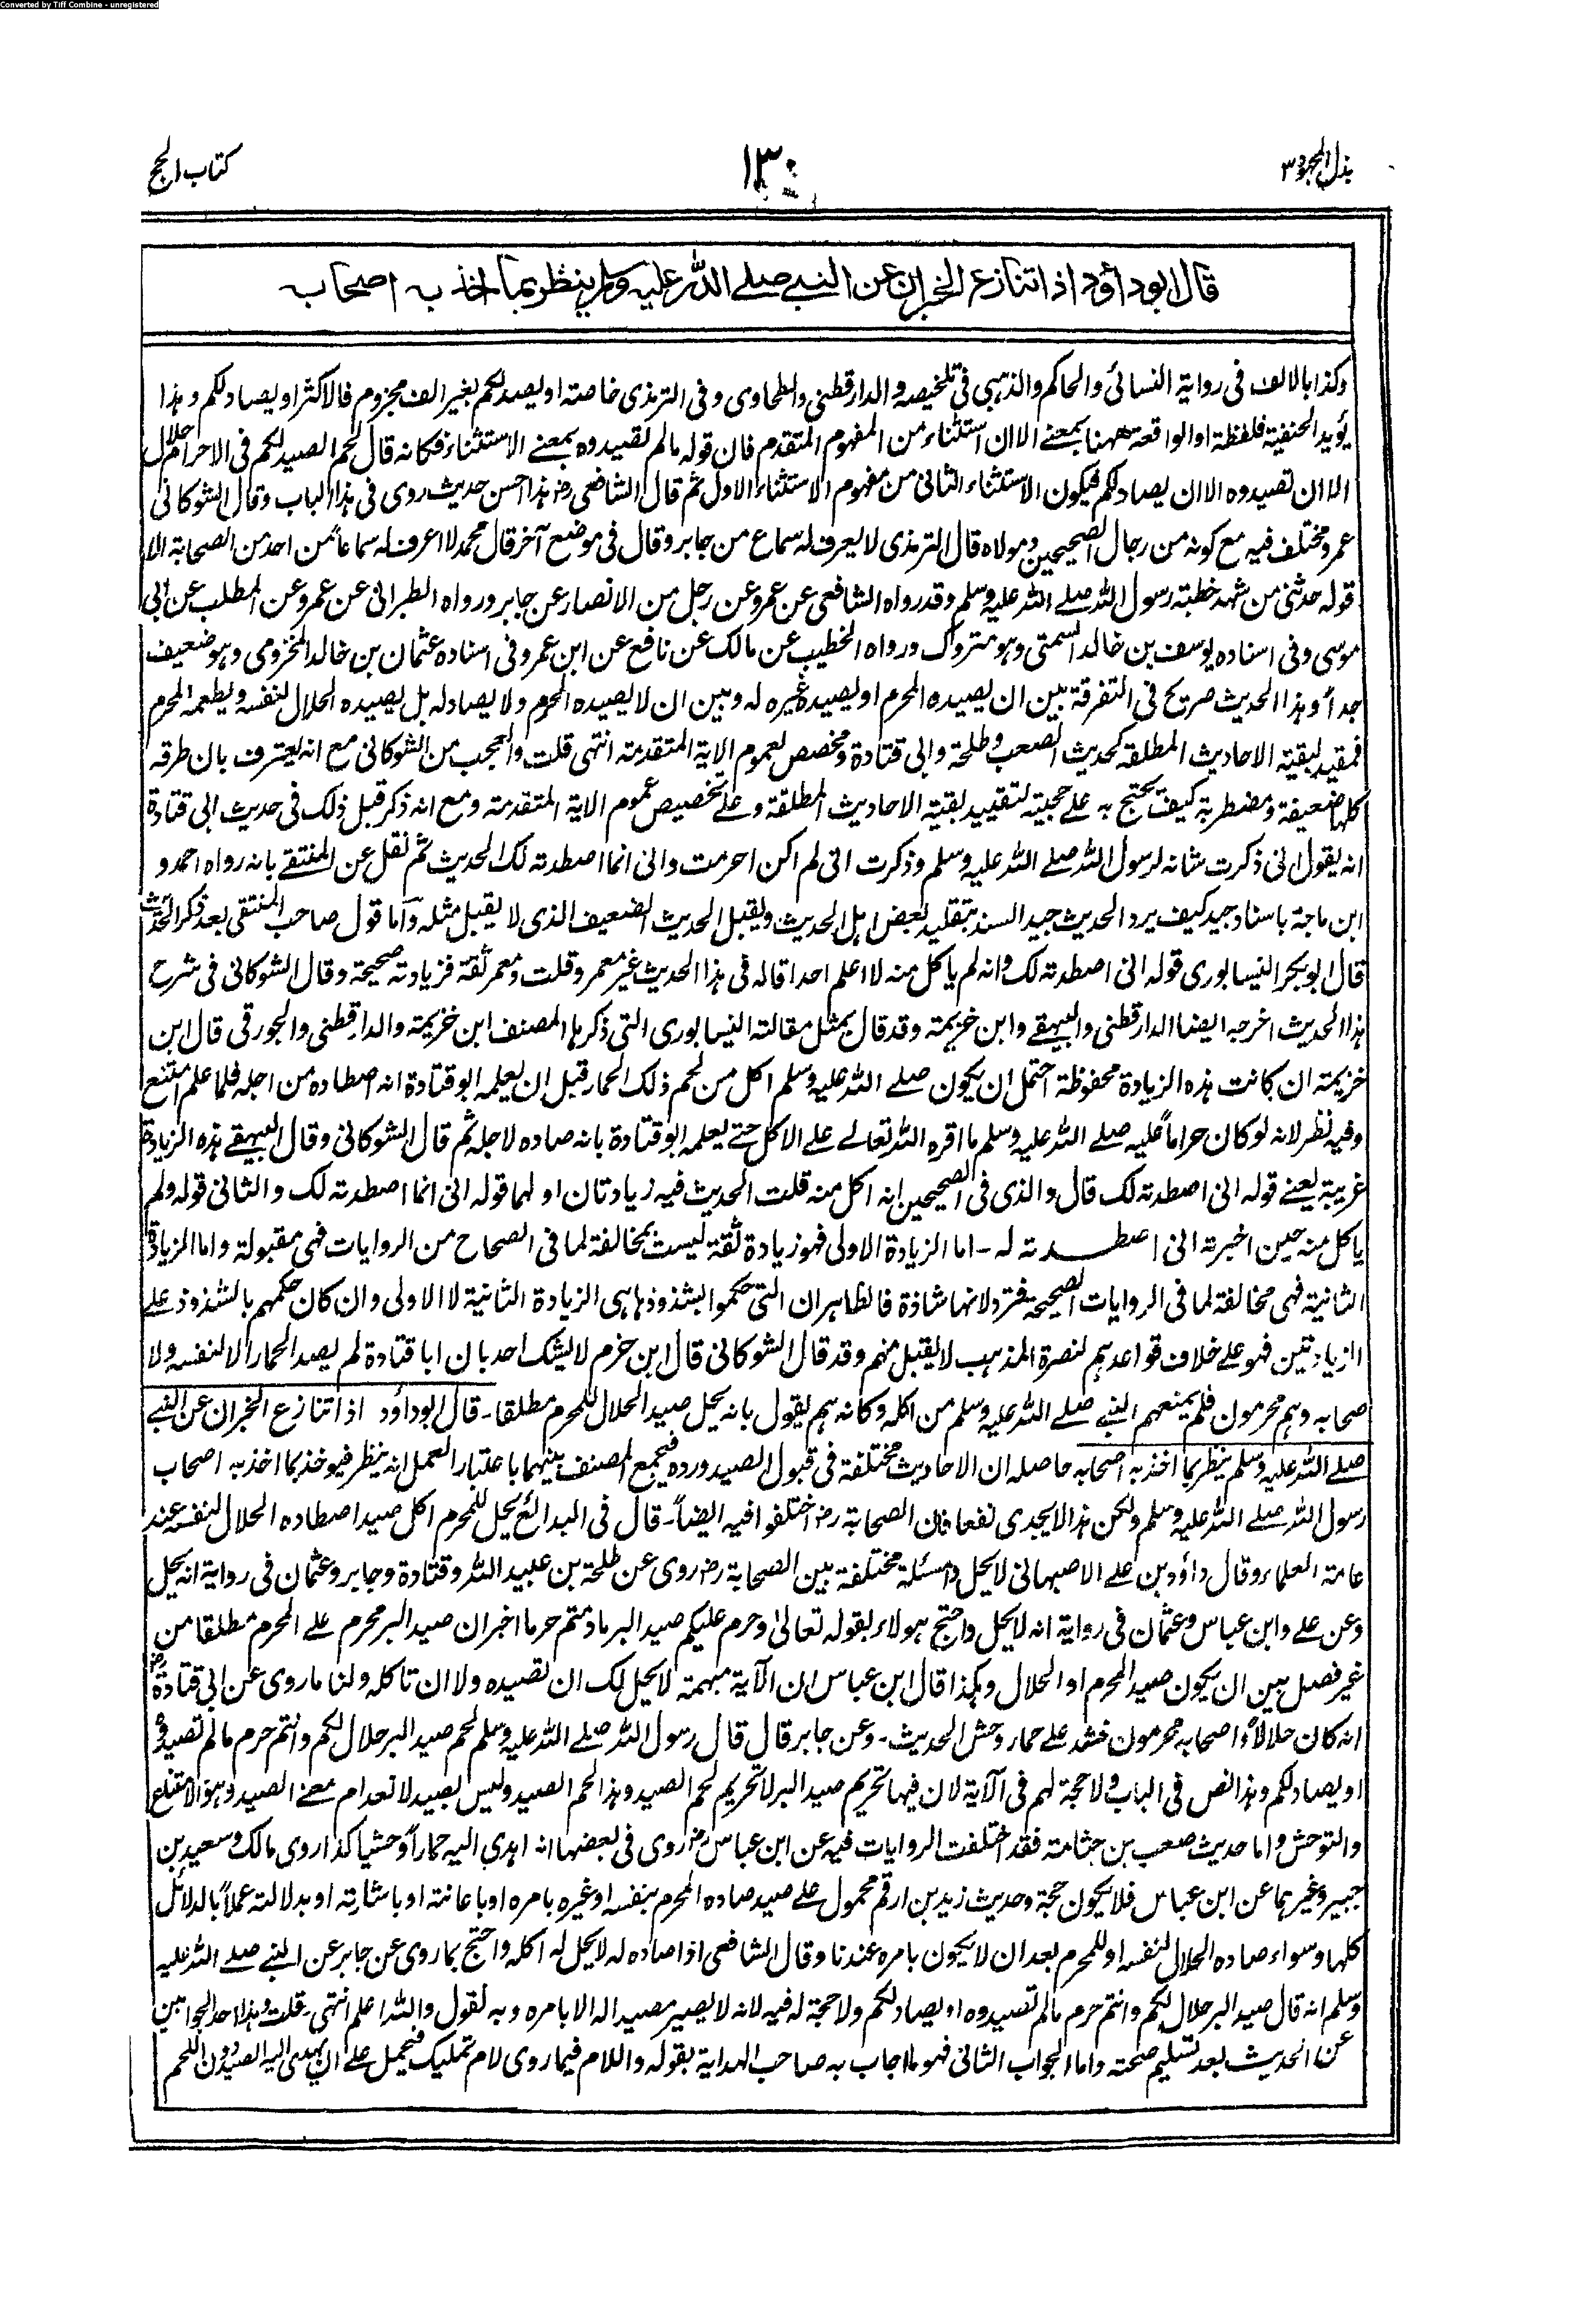 Converted by Tiff Combine - unregistered
بذل المجهود ٣
١٣٠
كتاب الحج
قال ابو داؤد اذا تنازع الخبران عن النبي صلے اللہ عليہ وسلم ينظر بما اخذ بہ اصحابہ
وكذا بالالف فى رواية النسائى والحاكم والذہبى فى تلخيصہ والدارقطنى والطحاوى وفى الترمذى خاصتہ او يصد لكم بغير الف مجزوم فالاكثر او يصاد لكم وہذا
يؤيد الحنفية فلفظة او الواقعة ھہنا بمعنے الا ان استثناء من المفہوم المتقدم فان قولہ مالم تصيدوہ بمعنے الاستثناء فكانہ قال لحم الصيد لكم فى الاحرام حلال
الا ان تصيدوہ الا ان يصاد لكم فيكون الاستثناء الثانى من مفہوم الاستثناء الاول ثم قال الشافعى رض ہذا احسن حديث روى فى ہذا الباب وقال الشوكانى
عمرو مختلف فيہ مع كونہ من رجال الصحيحين ومولاہ قال الترمذى لا يعرف لہ سماع من جابر وقال فى موضع آخر قال محمد لا اعرف لہ سماعاً من احد من الصحابة الا
قولہ حدثنى من شہد خطبة رسول اللہ صلے اللہ عليہ وسلم وقد رواہ الشافعى عن عمرو عن رجل من الانصار عن جابر ورواہ الطبرانى عن عمرو عن المطلب عن ابى
موسى وفى اسنادہ يوسف بن خالد السمتى وہو متروك ورواہ الخطيب عن مالك عن نافع عن ابن عمر وفى اسنادہ عثمان بن خالد المخزومى وہو ضعيف
جداً وہذا الحديث صريح فى التفرقة بين ان يصيدہ المحرم او يصيدہ غيرہ لہ وبين ان لا يصيدہ المحرم ولا يصاد لہ بل يصيدہ الحلال لنفسہ ويطعمہ المحرم
فمقيد لبقية الاحاديث المطلقة كحديث الصعب وطلحة وابى قتادة ومخصص لعموم الاية المتقدمة انتہى قلت والعجب من الشوكانى مع انہ يعترف بان طرقہ
كلہا ضعيفة ومضطربة كيف يحتج بہ على حجيتہ لتقييد بقية الاحاديث المطلقة وعلے تخصيص عموم الاية المتقدمة ومع انہ ذكر قبل ذلك فى حديث ابى قتادة
انہ يقول انى ذكرت شانہ لرسول اللہ صلے اللہ عليہ وسلم وذكرت انى لم اكن احرمت وانى انما اصطدتہ لك الحديث ثم نقل عن المنتقے بانہ رواہ احمد و
ابن ماجة باسناد جيد كيف يرد الحديث جيد السند بتقليد بعض اہل الحديث ويقبل الحديث الضعيف الذى لا يقبل مثلہ واما قول صاحب المنتقى بعد ذكر الحديث
قال ابو بكر النيسابورى قولہ انى اصطدتہ لك وانہ لم ياكل منہ لا اعلم احدا قالہ فى ہذا الحديث غير معمر وقلت ومعمر ثقة فزيادتہ صحيحة وقال الشوكانى فى شرح
ہذا الحديث اخرجہ ايضا الدارقطنى والبيہقے وابن خزيمة وقد قال بمثل مقالة النيسابورى التى ذكرہا المصنف ابن خزيمة والدارقطنى والجورقى قال ابن
خزيمة ان كانت ہذہ الزيادة محفوظة احتمل ان يكون صلے اللہ عليہ وسلم اكل من لحم ذلك الحمار قبل ان يعلمہ ابو قتادة انہ اصطادہ من اجلہ فلما علم امتنع
وفيہ نظر لانہ لو كان حراماً عليہ صلے اللہ عليہ وسلم ما اقرہ اللہ تعالے علے الاكل حتے يعلمہ ابو قتادة بانہ صادہ لاجلہ ثم قال الشوكانى وقال البيہقے ہذہ الزيادة
غريبة يعنے قولہ انى اصطدتہ لك قال والذى فى الصحيحين انہ اكل منہ قلت الحديث فيہ زيادتان اولہما قولہ انى انما اصطدتہ لك والثانى قولہ ولم
ياكل منہ حين اخبرتہ انى اصطدتہ لہ - اما الزيادة الاولى فہو زيادة ثقة ليست بمخالفة لما فى الصحاح من الروايات فہى مقبولة واما الزيادة
الثانية فہى مخالفة لما فى الروايات الصحيحة فترد لانہا شاذة فالظاہر ان التى حكموا بشذوذہا ہى الزيادة الثانية لا الاولى وان كان حكمہم بالشذوذ علے
الزيادتين فہو علے خلاف قواعدہم لنصرة المذہب لا يقبل منہم وقد قال الشوكانى قال ابن حزم لا يشك احد بان ابا قتادة لم يصد الحمار الا لنفسہ ولا
صحابہ وہم محرمون فلم يمنعہم النبے صلے اللہ عليہ وسلم من اكلہ وكانہ ہم يقول بانہ يحل صيد الحلال للمحرم مطلقا۔ قال ابو داؤد اذا تنازع الخبران عن النبے
صلے اللہ عليہ وسلم ينظر بما اخذ بہ اصحابہ حاصلہ ان الاحاديث مختلفة فى قبول الصيد وردہ فيجمع المصنف بينہما باعتبار العمل انہ ينظر فيوخذ بما اخذ بہ اصحاب
رسول اللہ صلے اللہ عليہ وسلم ولكن ہذا لا يجدى نفعا فان الصحابة رض اختلفوا فيہ ايضاً۔ قال فى البدائع يحل للمحرم اكل صيد اصطادہ الحلال لنفسہ عند
عامة العلماء وقال داؤد بن علے الاصبہانى لا يحل والمسئلة مختلفة بين الصحابة رض روى عن طلحة بن عبيد اللہ وقتادة وجابر وعثمان فى رواية انہ يحل
وعن على وابن عباس وعثمان فى رواية انہ لا يحل واحتج ہولاء بقولہ تعالىٰ وحرم عليكم صيد البر مادمتم حرما اخبر ان صيد البر محرم علے المحرم مطلقا من
غير فصل بين ان يكون صيد المحرم او الحلال وہكذا قال ابن عباس ان الآية مبہمة لا يحل لك ان تصيدہ ولا ان تاكلہ ولنا ما روى عن ابى قتادة رض
انہ كان حلالاً واصحابہ محرمون فشد علے حمار وحش الحديث۔ وعن جابر قال قال رسول اللہ صلے اللہ عليہ وسلم لحم صيد البر حلال لكم وانتم حرم مالم تصيدوہ
او يصاد لكم وہذا نص فى الباب ولا حجة لہم فى الآية لان فيہا تحريم صيد البر لا تحريم لحم الصيد وہذا لحم الصيد وليس بصيد لانعدام معنے الصيد وہو الامتناع
والتوحش واما حديث صعب بن جثامة فقد اختلفت الروايات فيہ عن ابن عباس رض روى فى بعضہا انہ اہدى اليہ حماراً وحشيا كذا روى مالك وسعيد بن
جبير وغيرہما عن ابن عباس فلا يكون حجة وحديث زيد بن ارقم محمول علے صيد صادہ المحرم بنفسہ او غيرہ بامرہ او باعانتہ او باشارتہ او بدلالتہ عملاً بالدلائل
كلہا وسواء صادہ الحلال لنفسہ او للمحرم بعد ان لا يكون بامرہ عندنا وقال الشافعى اذا صادہ لہ لا يحل لہ اكلہ واحتج بما روى عن جابر عن النبے صلے اللہ عليہ
وسلم انہ قال صيد البر حلال لكم وانتم حرم مالم تصيدوہ او يصاد لكم ولا حجة لہ فيہ لانہ لا يصير مصيدا لہ الا بامرہ وبہ نقول واللہ اعلم انتہى۔ قلت وہذا احد الجوابين
عن الحديث بعد تسليم صحتہ واما الجواب الثانى فہو ما اجاب بہ صاحب الہداية بقولہ واللام فيما روى لام تمليك فيحمل علے ان يہدى اليہ الصيد دون اللحم